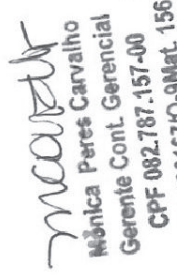 Mônica Peres Carvalho
Gerente Cont. Gerencial
CPF 082.787.157-00
Mat. 156